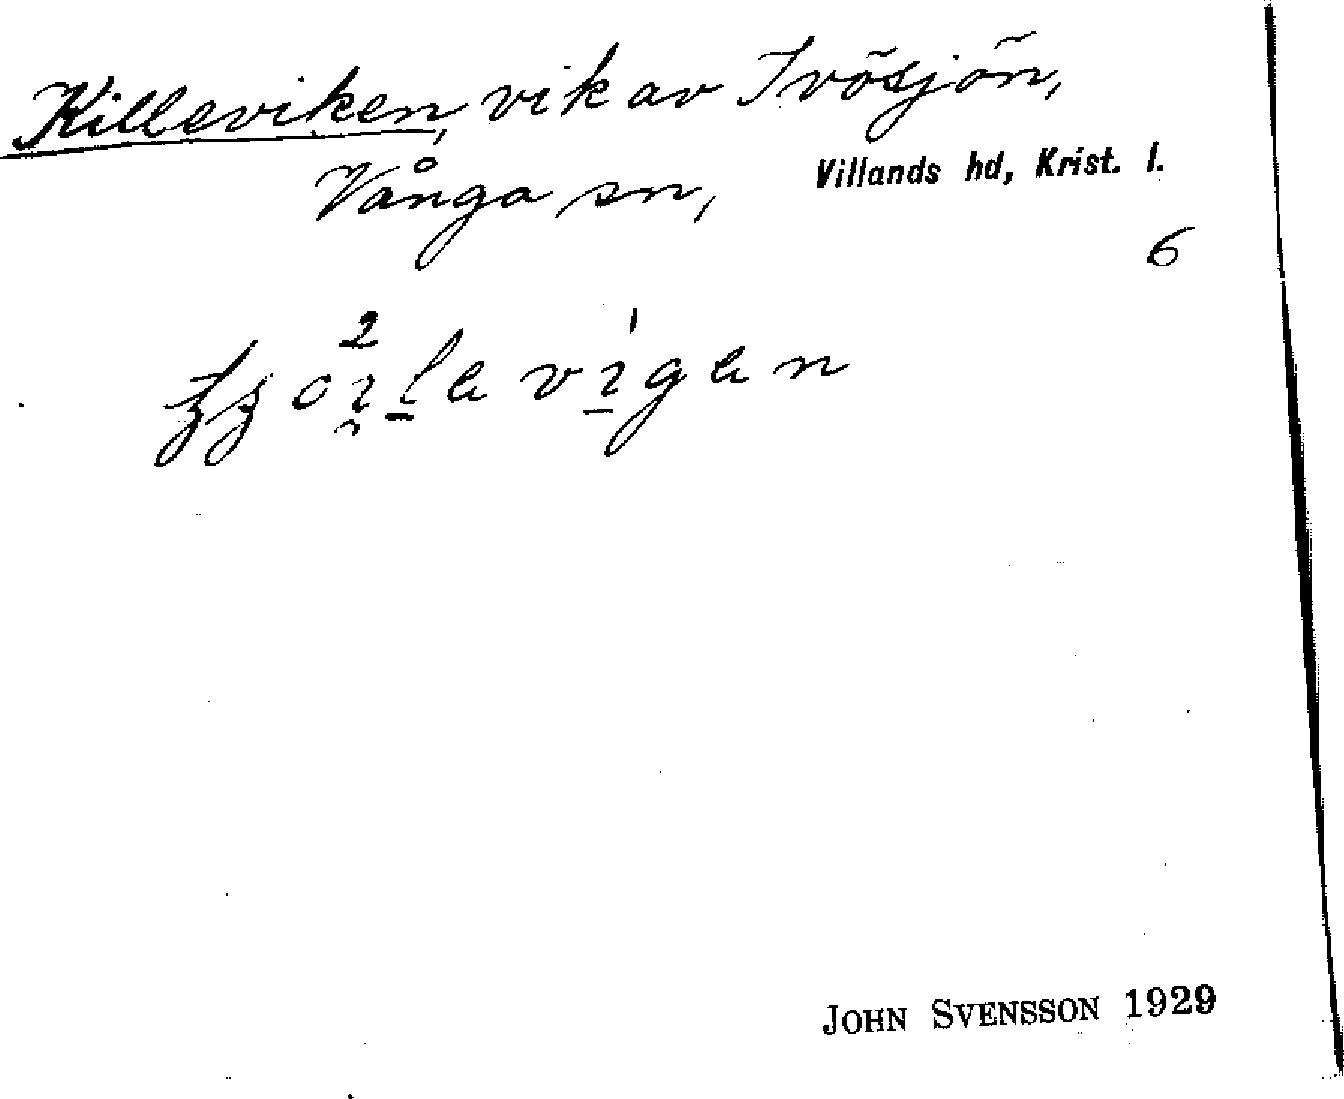 Killeviken, vik av Ivösjön,
Vånga sn, Villands hd, Krist. l.
6
JOHN SVENSSON 1929